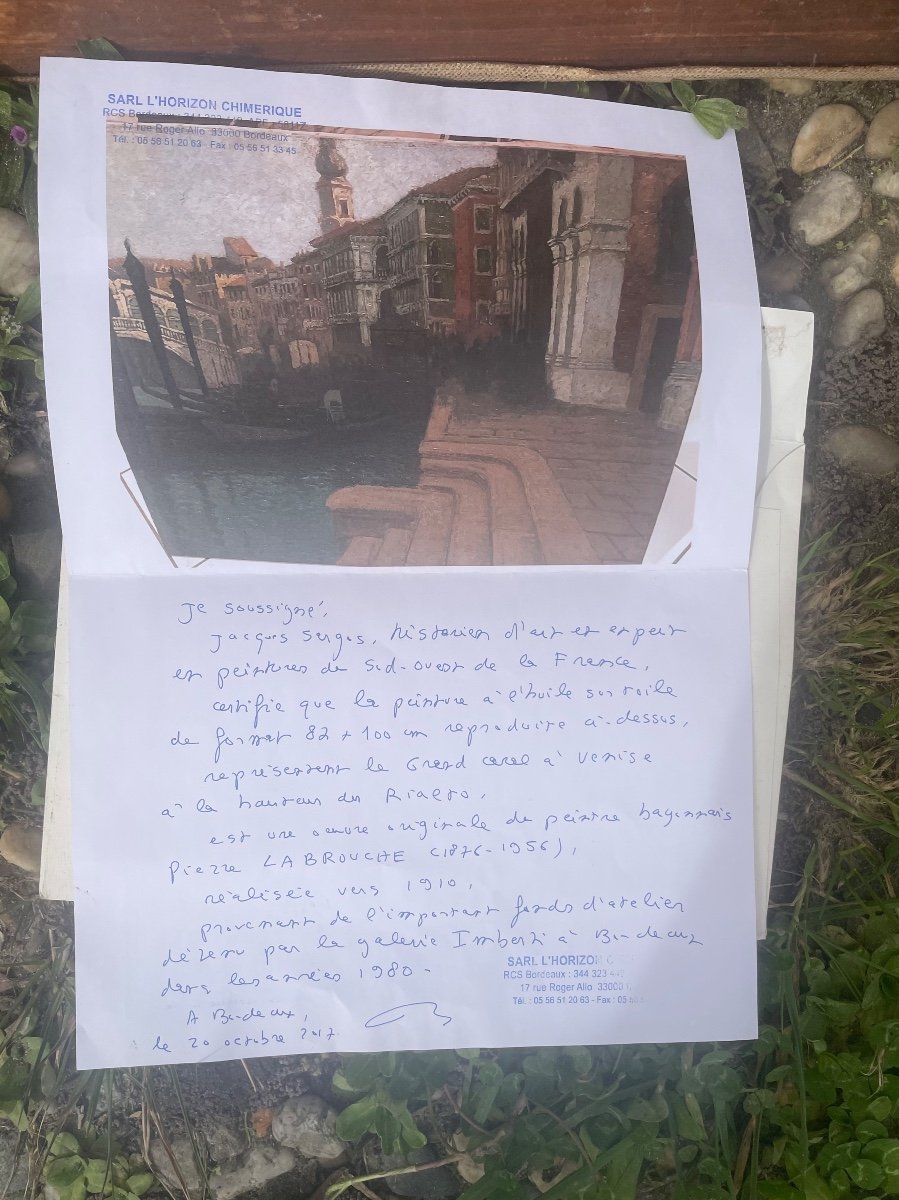 SARL L'HORIZON CHIMERIQUE
RCS Bordeaux : 344 323
17 rue Roger Allo 33000 Bordeaux
Tél. : 05 56 51 20 63 - Fax : 05 56 51 33 45
Je soussigné,
Jacques Sargos, historien d'art et expert
en peintures du Sud-Ouest de la France,
certifie que la peinture à l'huile sur toile
de format 82 x 100 cm reproduite ci-dessus,
représentant le Grand canal à Venise
à la hauteur du Rialto,
est une oeuvre originale du peintre bayonnais
Pierre LABROUCHE (1876-1956),
réalisée vers 1910,
provenant de l'important fonds d'atelier
détenu par la galerie Imberti à Bordeaux
dans les années 1980.
SARL L'HORIZON
RCS Bordeaux : 344 323
17 rue Roger Allo 33000
Tél. : 05 56 51 20 63 - Fax : 05
A Bordeaux,
le 20 octobre 2017